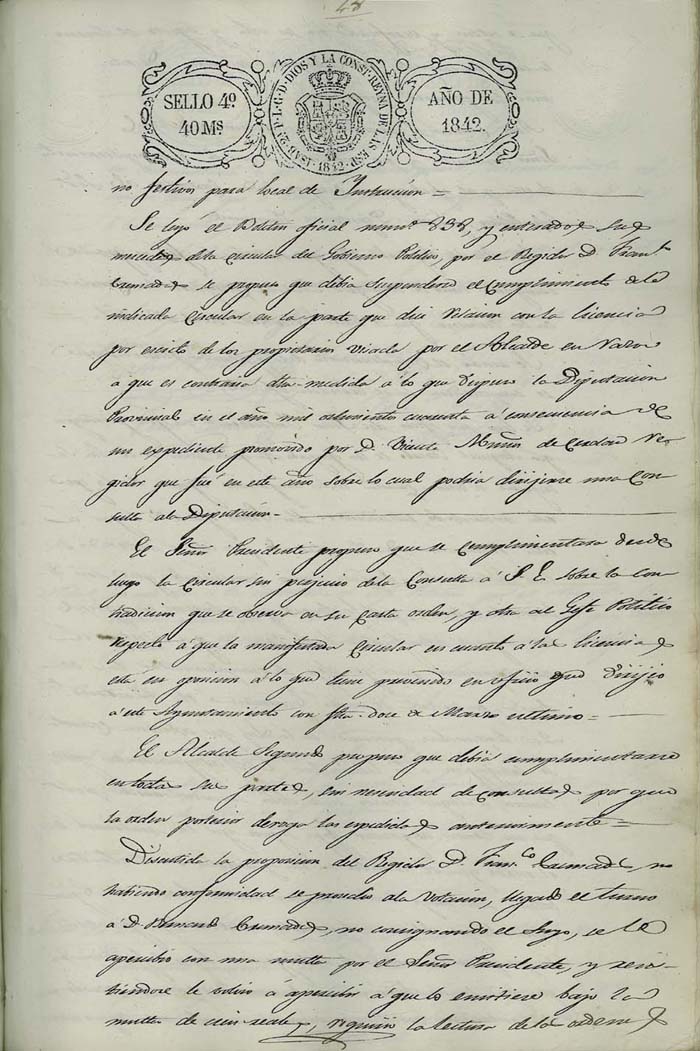 48
SELLO 4º
40 Ms
ISAB. 2ª P. L. G. D. DIOS Y LA CONST. REYNA DE LAS ESP. 1842
AÑO DE
1842.
no festivos para local de Instrucción =
Se leyó el Boletin oficial numº 838, y enterados sus
mercedes de la circular del Gobierno Politico, por el Regidor D. Franco
se propuso que debia suspenderse el Cumplimiento de la
indicada Circular en la parte que dice relacion con la licencia
por escrito de los propietarios por el Alcalde en razon
a que es contraria esta medida á lo que dispuso la Diputacion
Provincial en el año mil ochocientos cuarenta á consecuencia de
un expediente promovido por D. Vicente Muñoz de Re-
gidor que fué en este año sobre lo cual podria dirijirse una Con-
sulta ala Diputación =
El Señor Presidente propuso que se Complimentara desde
luego la Circular sin perjuicio dela Consulta á S. E. sobre la Con-
tradicion que se observa en su Carta orden, y otra al Gefe Politico
respecto á que la manifestada Circular en cuanto á las licencias
está en oposicion á lo que tiene prevenido en oficio que dirijio
á este Ayuntamiento con fha. doce de Marzo ultimo =
El Alcalde Segundo propuso que debia cumplimentarse
en todas sus partes, sin necesidad de Consultas por que
la orden posterior deroga las espedidas anteriormente =
Discutida la proposicion del Regidor D. Franco no
habiendo conformidad se procedio ala Votacion, llegado el turno
á D. no consignando el Suyo, se le
apercibio con una multa por el Señor Presidente, y resis-
tiendose le volvio á apercibir á que lo emitiese bajo la
multa de cien reales, la lectura de las ordenes